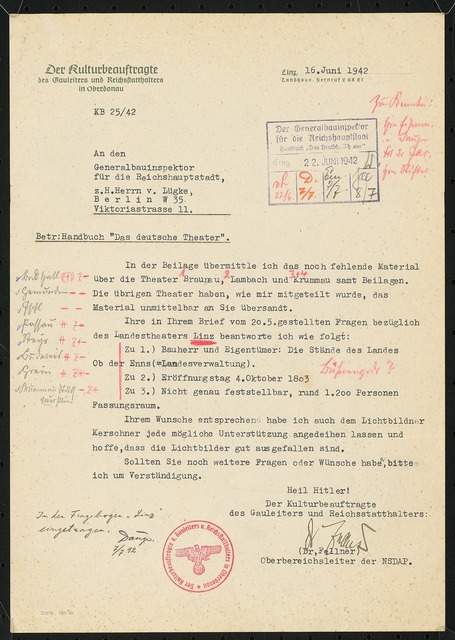 Der Kulturbeauftragte
des Gauleiters und Reichsstatthalters
in Oberdonau
Linz, 16.Juni 1942
Landhaus, Fernruf
KB 25/42
An den
Generalbauinspektor
für die Reichshauptstadt,
z.H.Herrn v. Lügke,
Berlin W 35
Viktoriastrasse 11.
Der Generalbauinspektor
für die Reichshauptstadt
Handbuch „Das Deutsche Theater"
Eing. 22. JUNI 1942
Betr:Handbuch "Das deutsche Theater".
In der Beilage übermittle ich das noch fehlende Material
über die Theater Braunau, Lambach und Krummau samt Beilagen.
Die übrigen Theater haben, wie mir mitgeteilt wurde, das
Material unmittelbar an Sie übersandt.
Ihre in Ihrem Brief vom 20.5.gestellten Fragen bezüglich
des Landestheaters Linz beantworte ich wie folgt:
Zu 1.) Bauherr und Eigentümer: Die Stände des Landes
Ob der Enns(=Landesverwaltung).
Zu 2.) Eröffnungstag 4.Oktober 1803
Zu 3.) Nicht genau feststellbar, rund 1.200 Personen
Fassungsraum.
Ihrem Wunsche entsprechend habe ich auch dem Lichtbildner
Kerschner jede mögliche Unterstützung angedeihen lassen und
hoffe,dass die Lichtbilder gut ausgefallen sind.
Sollten Sie noch weitere Fragen oder Wünsche haben,bitte
ich um Verständigung.
Heil Hitler!
Der Kulturbeauftragte
des Gauleiters und Reichsstatthalters:
(Dr.Fellner)
Oberbereichsleiter der NSDAP.
In den Fragebogen „Linz"
eingetragen.
Der Kulturbeauftragte d. Gauleiters u. Reichsstatthalters in Oberdonau